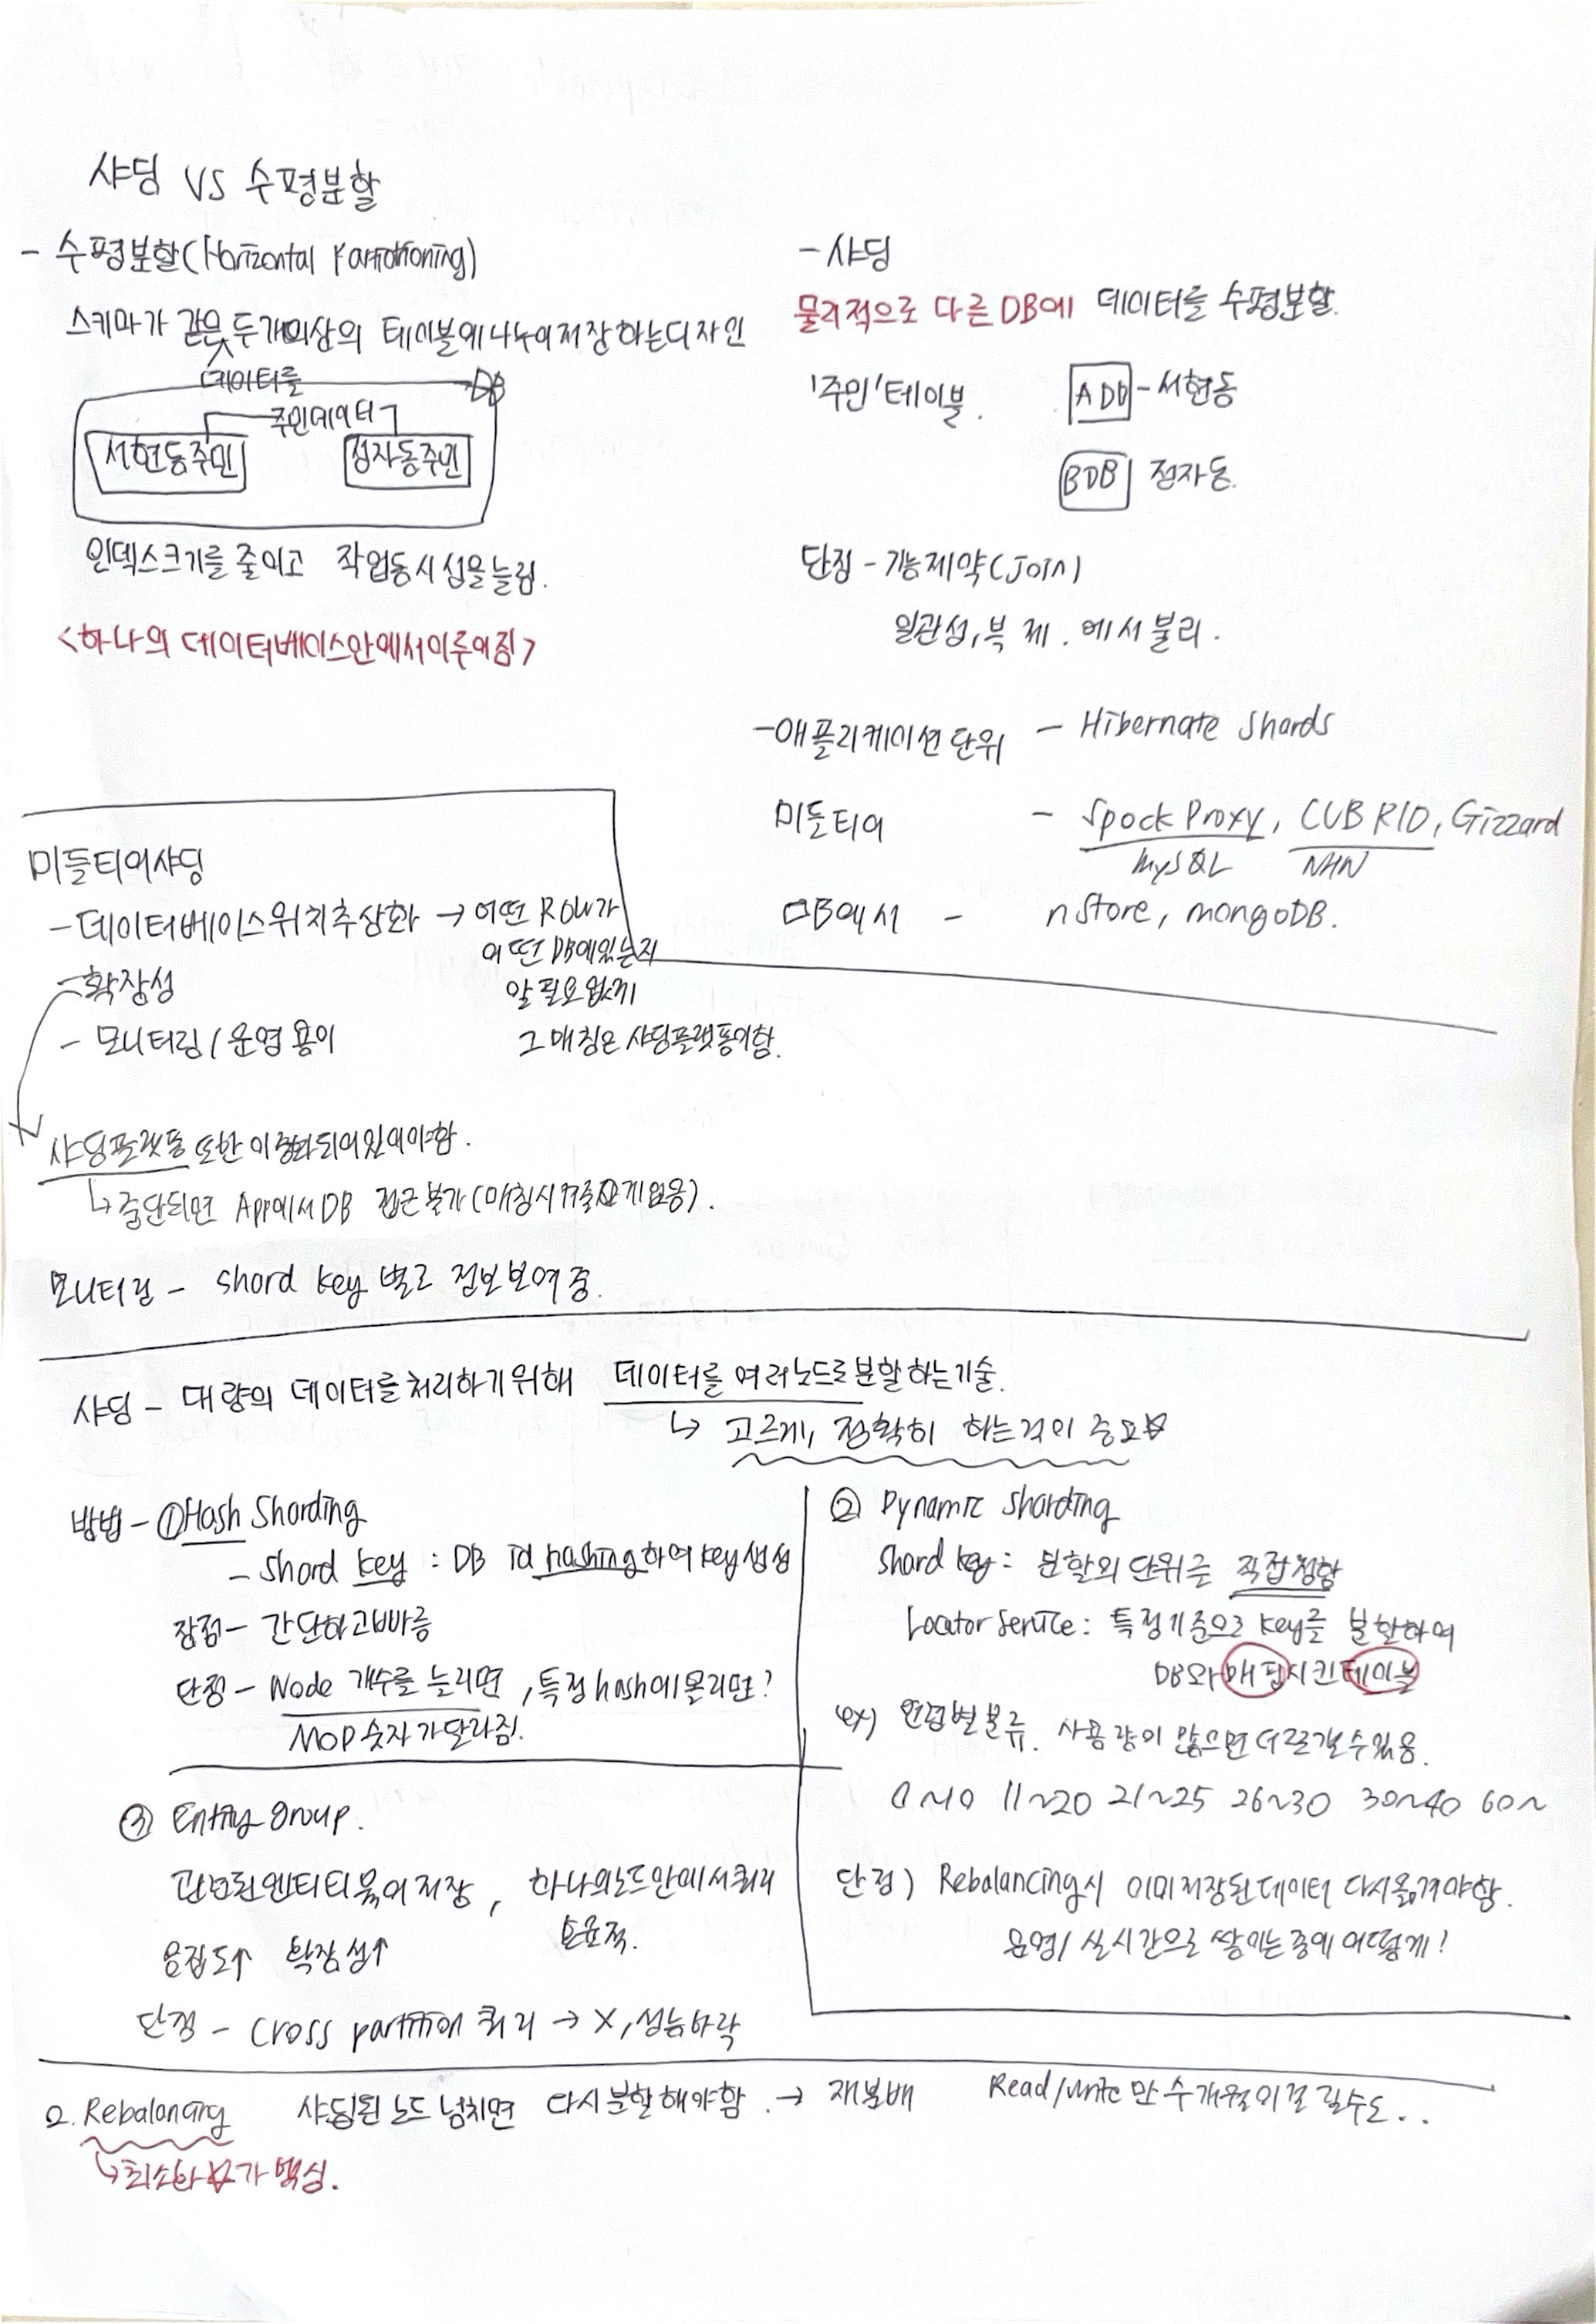 샤딩 VS 수평분할
- 수평분할(Horizontal Partitioning)
스키마가 같은 두개이상의 테이블에 나누어 저장하는 디자인
데이터를
DB
주민데이터
서현동주민
정자동주민
인덱스크기를 줄이고 작업동시성을 늘림.
<하나의 데이터베이스안에서 이루어짐>
- 샤딩
물리적으로 다른 DB에 데이터를 수평분할.
'주민' 테이블.
A DB - 서현동
B DB 정자동.
단점 - 기능제약(Join)
일관성, 복제. 에서 불리.
- 애플리케이션 단위 - Hibernate Shards
미들티어 - Spock Proxy, CUBRID, Gizzard
MySQL NHN
DB에서 - nStore, mongoDB.
미들티어샤딩
- 데이터베이스 위치 추상화 → 어떤 Row가
어떤 DB에 있는지
알 필요없게
그 매칭은 샤딩플랫폼이함.
- 확장성
- 모니터링/운영 용이
샤딩플랫폼 또한 이중화 되어있어야함.
↳ 중단되면 App에서 DB 접근불가(매칭시켜줄 게 없음).
모니터링 - shard key 별로 정보 보여줌.
샤딩 - 대량의 데이터를 처리하기 위해 데이터를 여러노드로 분할하는 기술.
↳ 고르게, 정확히 하는것이 중요☆
방법 - ① Hash Sharding
- Shard key : DB id hashing하여 key 생성
장점 - 간단하고 빠름
단점 - Node 개수를 늘리면, 특정 hash에 몰리면?
MOD 숫자가 달라짐.
② Dynamic Sharding
Shard key : 분할의 단위를 직접정함
Locator Service : 특정기준으로 key를 분할하여
DB와 매핑시킨 테이블
ex) 연령별 분류. 사용량이 많으면 더 쪼갤 수 있음.
0~10 11~20 21~25 26~30 30~40 60~
단점) Rebalancing시 이미 저장된 데이터 다시 옮겨야함.
운영/실시간으로 쌓이는 중에 어떻게!
③ Entity group.
관련된 엔티티 묶어 저장, 하나의 노드안에서 쿼리
효율적.
응집도↑ 확장성↑
단점 - Cross partition 쿼리 → X, 성능하락
2. Rebalancing 샤딩된 노드 넘치면 다시 분할해야함. → 재분배 Read/write 만 수개월이 걸릴수도..
↳ 최소화☆가 핵심.